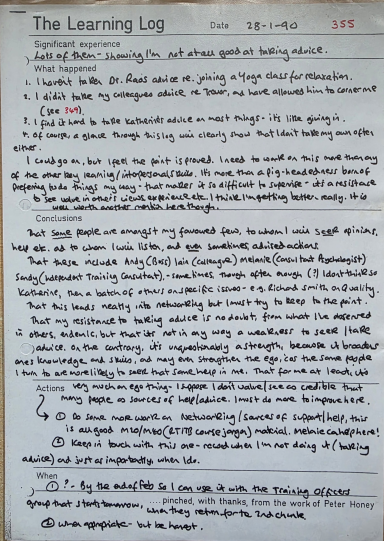 The Learning Log Date 28-1-90 355
Significant experience
Lots of them - showing I'm not at all good at taking advice.
What happened
1. I haven't taken Dr. Rao's advice re. joining a Yoga class for relaxation.
2. I didn't take my colleagues advice re Trevor, and have allowed him to corner me
(see 349).
3. I find it hard to take Katherine's advice on most things - it's like giving in.
4. of course, a glance through this log will clearly show that I don't take my own often
either.
I could go on, but I feel the point is proved. I need to work on this more than any
of the other key learning/interpersonal skills. It's more than a pig-headedness born of
preferring to do things my way - that makes it so difficult to supervise - it's a resistance
to see value in others views, experience etc. I think I'm getting better, really. It is
well worth another mention here though.
Conclusions
That some people are amongst my favoured few, to whom I will seek opinions,
help etc. and to whom I will listen, and even sometimes, advised actions.
That these include Andy (Boss) Iain (colleague) Melanie (Consultant Psychologist)
Sandy (Independent Training Consultant) - sometimes, though often enough (?) I don't think so
Katherine, then a batch of others on specific issues - e.g. Richard Smith on Quality.
That this leads neatly into networking but I must try to keep to the point.
That my resistance to taking advice is no doubt from what I've observed
in others, endemic, but that it's not in any way a weakness to seek/take
advice. On the contrary, it's unquestionably a strength, because it broadens
ones knowledge, and skills, and may even strengthen the ego, 'cos the same people
I turn to are more likely to seek that same help in me. That for me at least, it's
very much an ego thing - I suppose I don't value/see as credible that
many people as sources of help/advice. I must do more to improve here.
Actions
① Do some more work on Networking/sources of support/help, this
is all good M10/M60 (RTITB course jargon) material. Melanie can help here!
② Keep in touch with this one - record when I'm not doing it (taking
advice) and just as importantly, when I do.
When
① ? - By the end of Feb so I can use it with the Training Officers
group that starts tomorrow, when they return for the 2nd chunk.
....pinched, with thanks, from the work of Peter Honey
② when appropriate - but be honest.